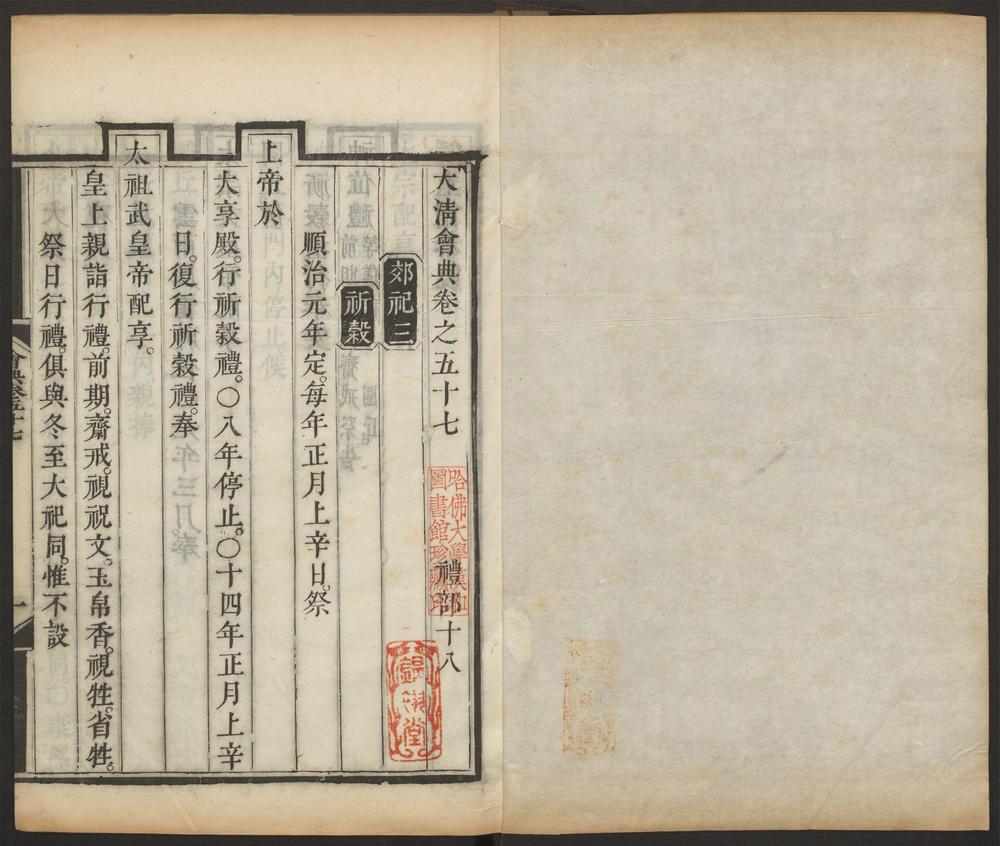 大清會典卷之五十七　禮部十八
郊祀三
祈穀
順治元年定。每年正月上辛日。祭
上帝於
大享殿。行祈穀禮。〇八年停止。〇十四年正月上辛
日。復行祈穀禮。奉
太祖武皇帝配享。
皇上親詣行禮。前期。齋戒。視祝文。玉帛香。視牲。省牲。
祭日行禮。俱與冬至大祀同。惟不設
會典卷五十七
一
哈佛大學漢和
圖書館珍藏印